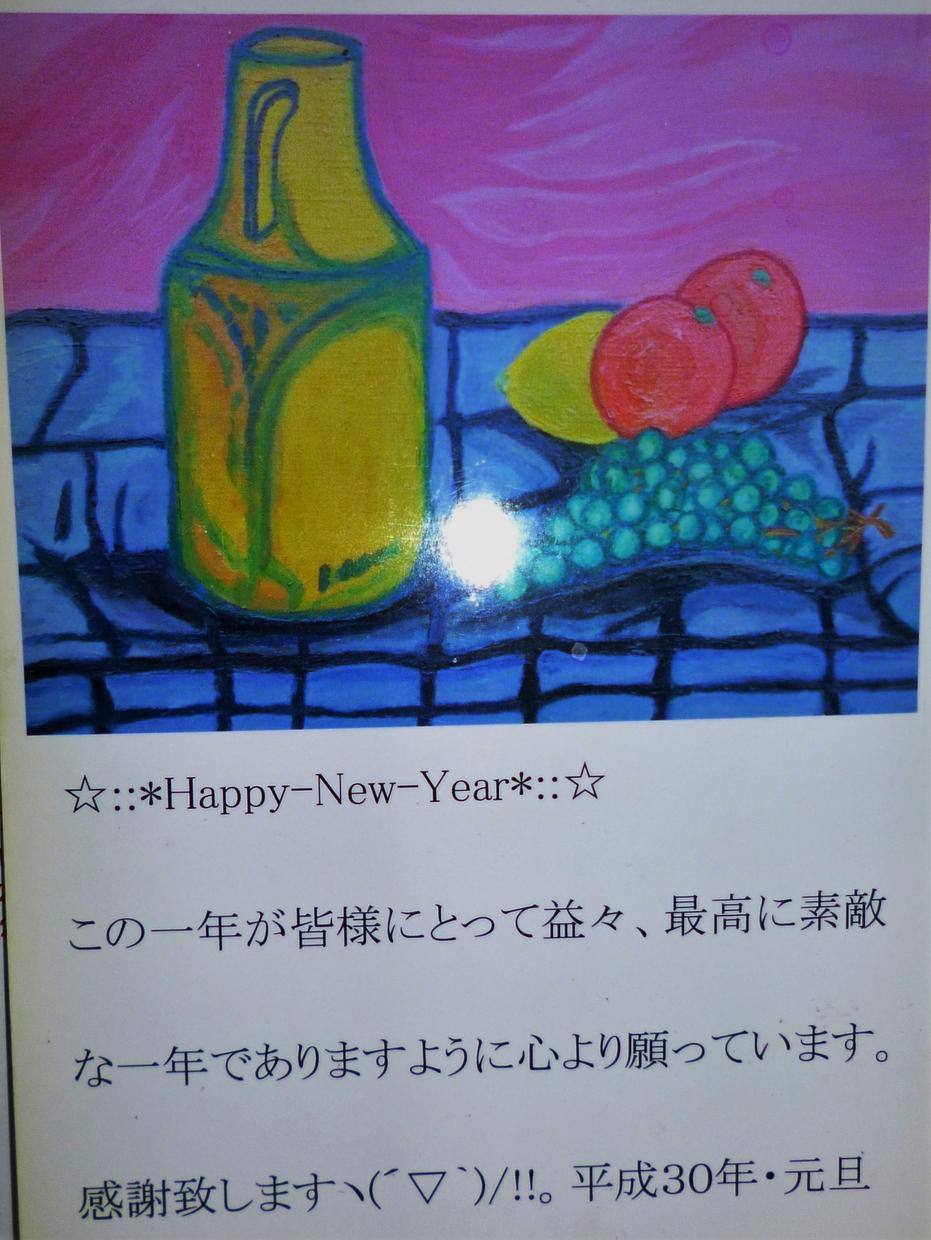 ☆::*Happy-New-Year*::☆
この一年が皆様にとって益々、最高に素敵
な一年でありますように心より願っています。
感謝致しますヽ(´▽`)/!!。平成30年・元旦